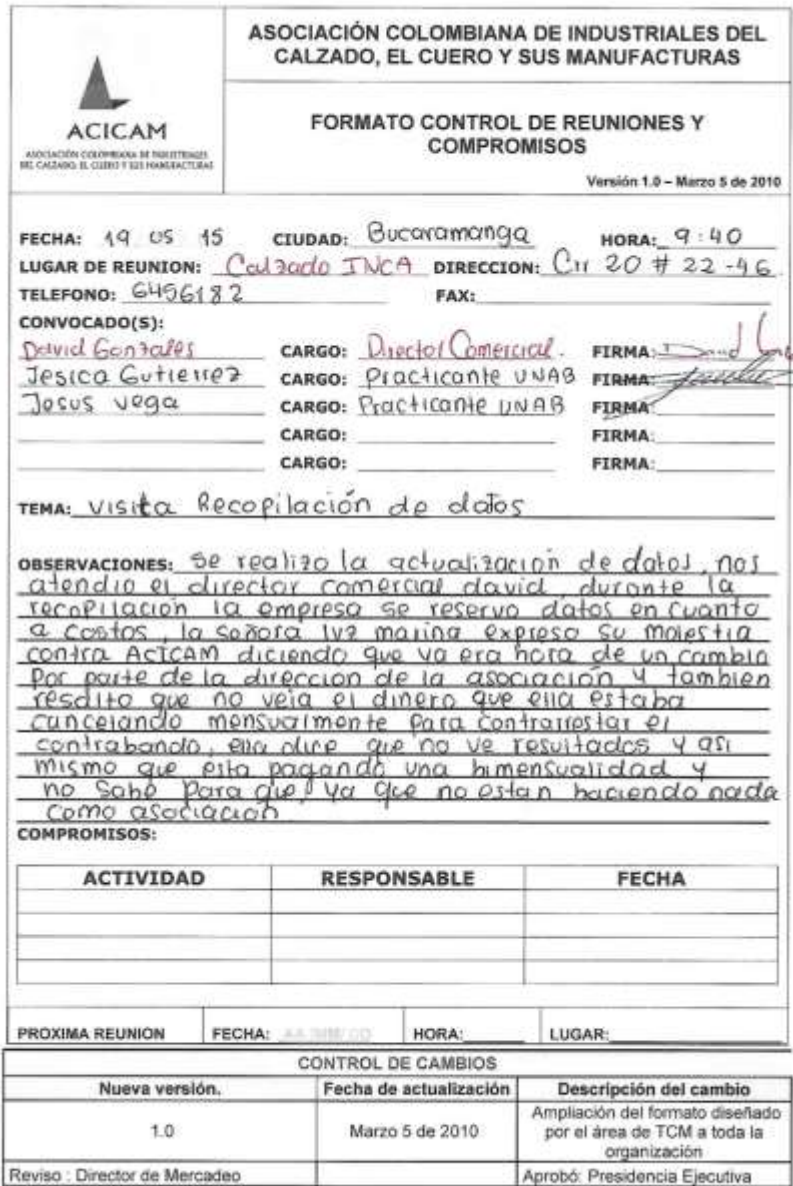 ACICAM
ASOCIACIÓN COLOMBIANA DE INDUSTRIALES
DEL CALZADO, EL CUERO Y SUS MANUFACTURAS
ASOCIACIÓN COLOMBIANA DE INDUSTRIALES DEL
CALZADO, EL CUERO Y SUS MANUFACTURAS
FORMATO CONTROL DE REUNIONES Y
COMPROMISOS
Versión 1.0 – Marzo 5 de 2010
FECHA: 19 05 15 CIUDAD: Bucaramanga HORA: 9:40
LUGAR DE REUNION: Calzado INCA DIRECCION: 20 # 22-46
TELEFONO: 6456182 FAX:
CONVOCADO(S):
David Gonzales CARGO: Director Comercial. FIRMA: David
Jesica Gutierrez CARGO: Practicante UNAB FIRMA:
Jesus vega CARGO: Practicante UNAB FIRMA:
CARGO: FIRMA:
CARGO: FIRMA:
TEMA: visita Recopilación de datos
OBSERVACIONES: se realizo la actualización de datos, nos
atendio el director comercial david, durante la
recopilación la empresa se reservo datos en cuanto
a costos, la señora luz marina expreso su molestia
contra ACICAM diciendo que ya era hora de un cambio
por parte de la direccion de la asociación y tambien
que no veia el dinero que ella estaba
cancelando mensualmente para contrarrestar el
contrabando, ella dice que no ve resultados y asi
mismo que esta pagando una bimensualidad y
no sabe para que, ya que no estan haciendo nada
como asociacion
COMPROMISOS:
ACTIVIDAD RESPONSABLE FECHA
PROXIMA REUNION FECHA: AA/MM/DD HORA: LUGAR:
CONTROL DE CAMBIOS
Nueva versión. Fecha de actualización Descripción del cambio
1.0 Marzo 5 de 2010 Ampliación del formato diseñado
por el área de TCM a toda la
organización
Reviso : Director de Mercadeo Aprobó: Presidencia Ejecutiva